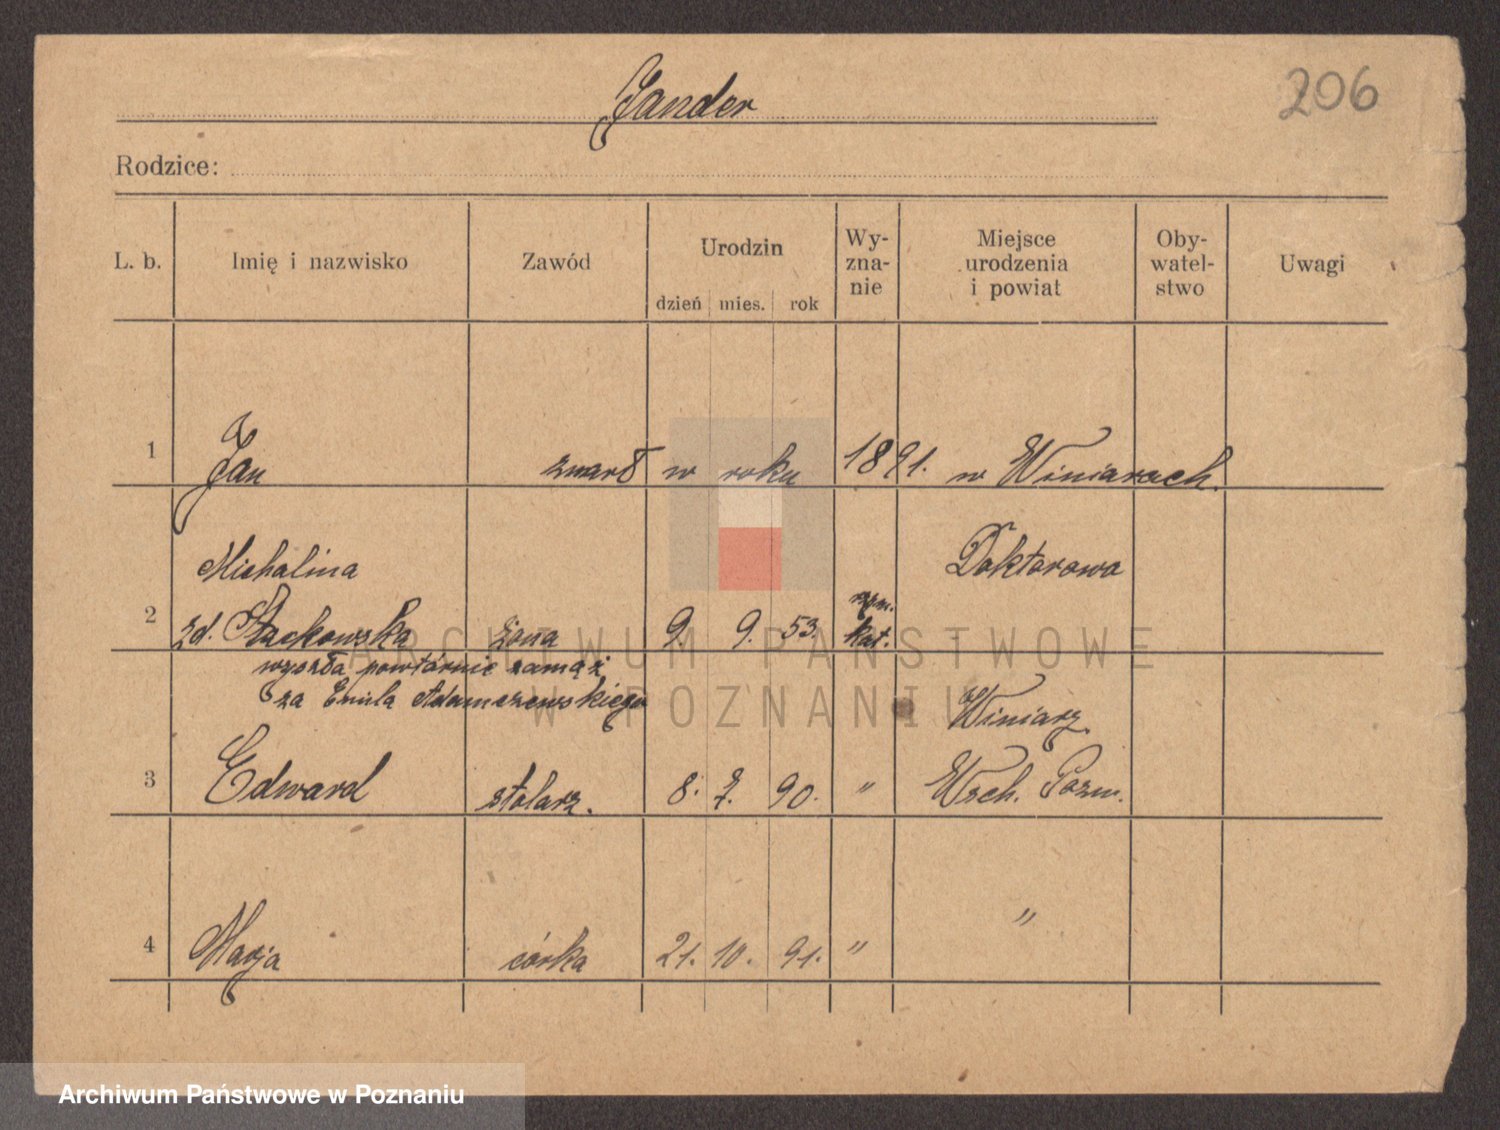 206
Jander
Rodzice:
L. b. Imię i nazwisko Zawód Urodzin dzień mies. rok Wy-zna-nie Miejsce urodzenia i powiat Oby-watel-stwo Uwagi
1 Jan zmarł w roku 1891. w Winiarach.
Michalina Doktorowo
2 zd. żona 9. 9. 53. rzm. kat.
wyszła powtórnie zamąż
za Emila Adamczewskiego
Winiary
3 Edward stolarz. 8. 7. 90. " Wsch. Pozn.
4 Marja córka 21. 10. 91. " "
ARCHIWUM PAŃSTWOWE
W POZNANIU
Archiwum Państwowe w Poznaniu